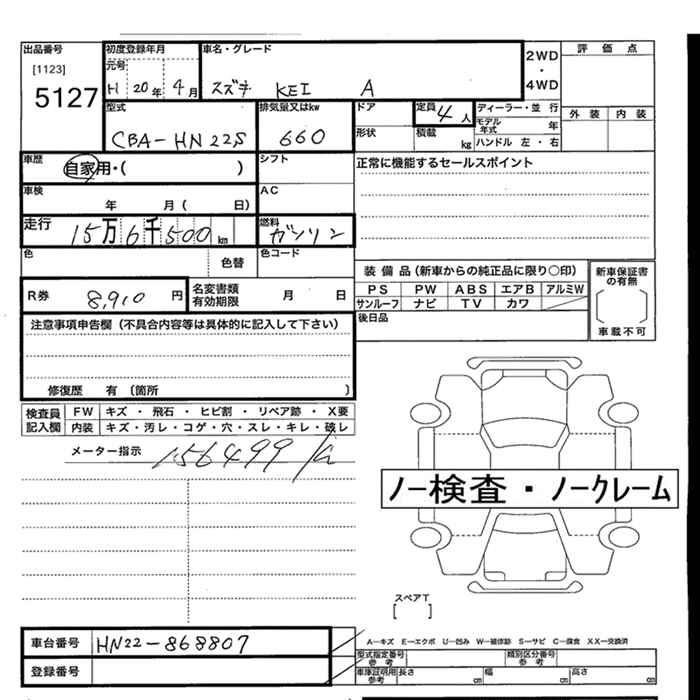 出品番号 初度登録年月 車名・グレード 2WD 評価点
[1123] 元号 ・
5127 H 20年 4月 スズキ KEI A 4WD
型式 排気量又はkw ドア 定員 4人 ディーラー・並行 外装 内装
CBA-HN22S 660 形状 積載 kg モデル年式 年
ハンドル 左・右
車歴 自家用・( ) シフト 正常に機能するセールスポイント
車検 年 月( 日) AC
走行 15万6千500km 燃料 ガソリン
色 色替 色コード
装備品(新車からの純正品に限り○印) 新車保証書の有無
R券 8,910円 名変書類有効期限 月 日 PS PW ABS エアB アルミW
サンルーフ ナビ TV カワ
注意事項申告欄(不具合内容等は具体的に記入して下さい) 後日品 車載不可
修復歴 有(箇所 )
検査員記入欄 FW キズ・飛石・ヒビ割・リペア跡・X要
内装 キズ・汚レ・コゲ・穴・スレ・キレ・破レ
メーター指示 156499
ノー検査・ノークレーム
スペアT
[ ]
車台番号 HN22-868807 A−キズ E−エクボ U−凹み W−補修跡 S−サビ C−腐食 XX−交換済
型式指定番号 参考 類別区分番号 参考
登録番号 車庫証明用 参考 長さ cm 幅 cm 高さ cm